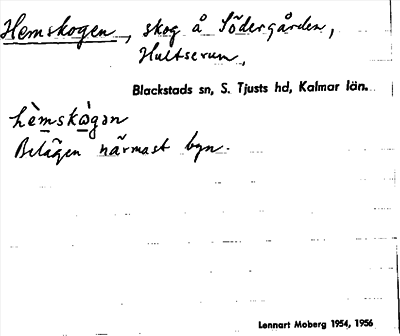 Hemskogen, skog å Södergården,
Hultserum,
Blackstads sn, S. Tjusts hd, Kalmar län.
hèmskò̱gən
Belägen närmast byn.
Lennart Moberg 1954, 1956